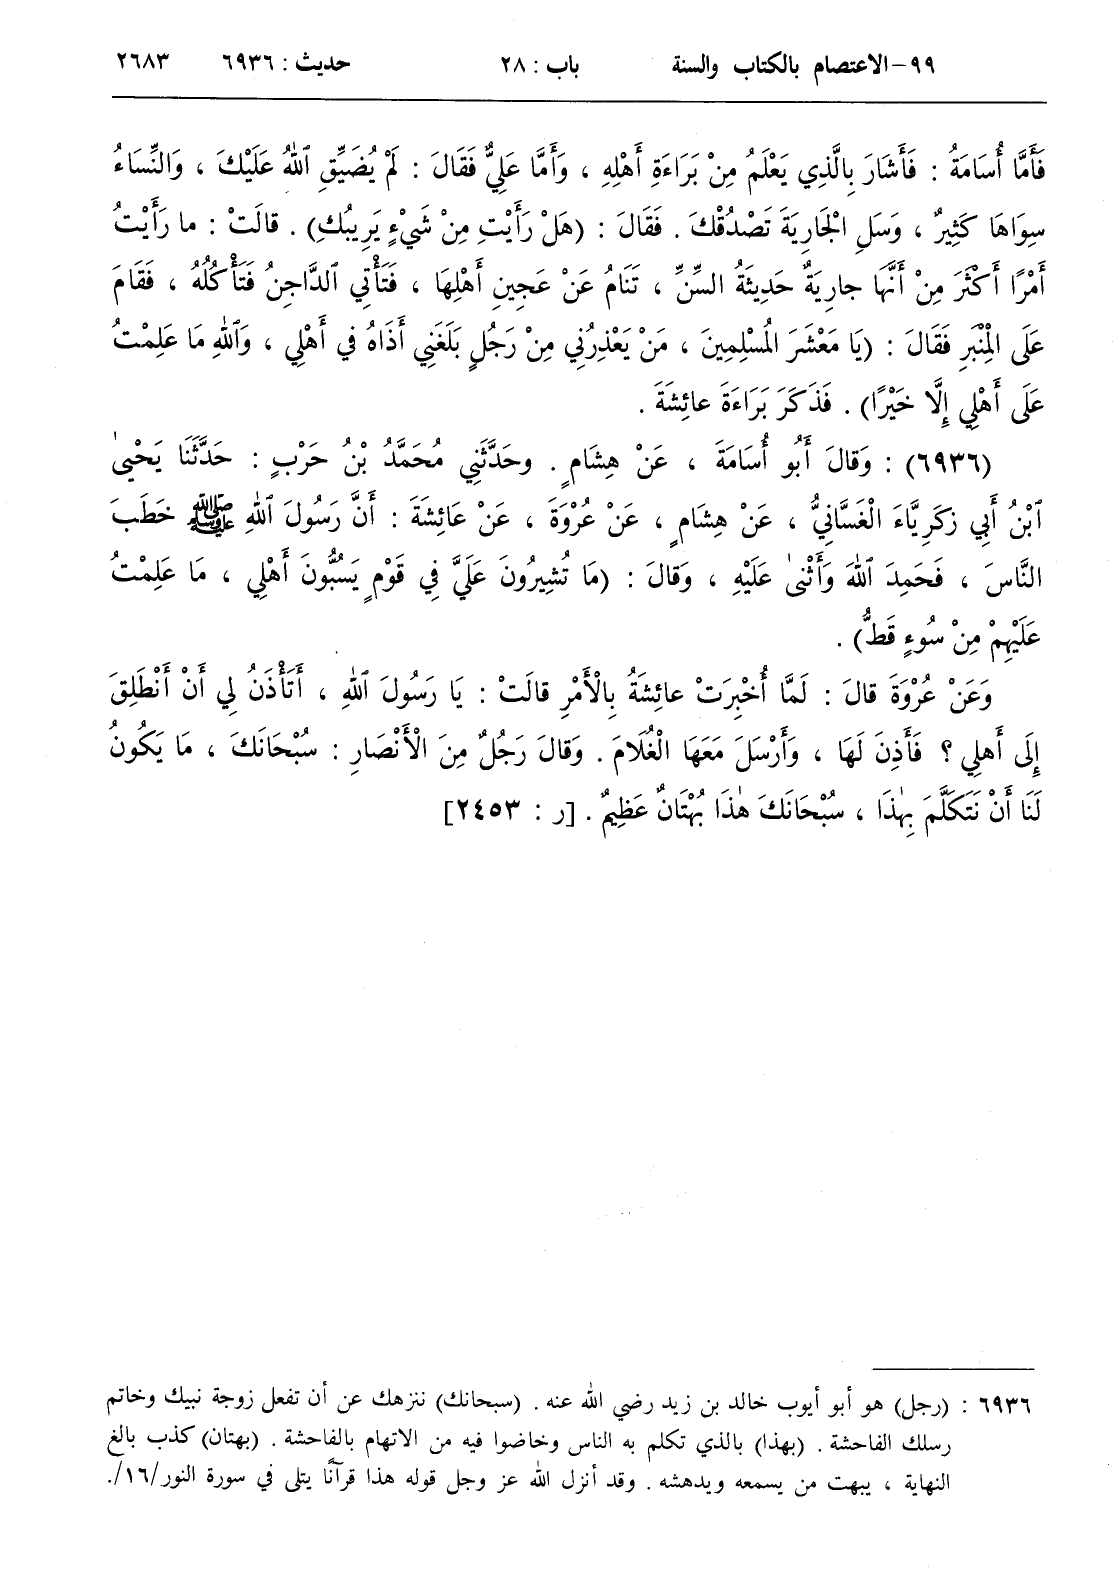 ٩٩-الاعتصام بالكتاب والسنة باب : ٢٨ حديث : ٦٩٣٦ ٢٦٨٣
فَأَمَّا أُسَامَةُ : فَأَشَارَ بِالَّذِي يَعْلَمُ مِنْ بَرَاءَةِ أَهْلِهِ ، وَأَمَّا عَلِيٌّ فَقَالَ : لَمْ يُضَيِّقِ ٱللهُ عَلَيْكَ ، وَالنِّسَاءُ
سِوَاهَا كَثِيرٌ ، وَسَلِ الْجَارِيَةَ تَصْدُقْكَ . فَقَالَ : (هَلْ رَأَيْتِ مِنْ شَيْءٍ يَرِيبُكِ) . قالَتْ : ما رَأَيْتُ
أَمْرًا أَكْثَرَ مِنْ أَنَّهَا جارِيَةٌ حَدِيثَةُ السِّنِّ ، تَنَامُ عَنْ عَجِينِ أَهْلِهَا ، فَتَأْتِي ٱلدَّاجِنُ فَتَأْكُلُهُ ، فَقَامَ
عَلَى الْمِنْبَرِ فَقَالَ : (يَا مَعْشَرَ المُسْلِمِينَ ، مَنْ يَعْذِرُنِي مِنْ رَجُلٍ بَلَغَنِي أَذَاهُ فِي أَهْلِي ، وَٱللهِ مَا عَلِمْتُ
عَلَى أَهْلِي إِلَّا خَيْرًا) . فَذَكَرَ بَرَاءَةَ عائِشَةَ .
(٦٩٣٦) : وَقالَ أَبُو أُسَامَةَ ، عَنْ هِشَامٍ . وحَدَّثَنِي مُحَمَّدُ بْنُ حَرْبٍ : حَدَّثَنَا يَحْيىٰ
ٱبْنُ أَبِي زكَرِيَّاءَ الْغَسَّانِيُّ ، عَنْ هِشَامٍ ، عَنْ عُرْوَةَ ، عَنْ عَائِشَةَ : أَنَّ رَسُولَ ٱللهِ ﷺ خَطَبَ
النَّاسَ ، فَحَمِدَ ٱللهَ وَأَثْنىٰ عَلَيْهِ ، وَقالَ : (مَا تُشِيرُونَ عَلَيَّ فِي قَوْمٍ يَسُبُّونَ أَهْلِي ، مَا عَلِمْتُ
عَلَيْهِمْ مِنْ سُوءٍ قَطُّ) .
وَعَنْ عُرْوَةَ قالَ : لَمَّا أُخْبِرَتْ عائِشَةُ بِالْأَمْرِ قالَتْ : يَا رَسُولَ ٱللهِ ، أَتَأْذَنُ لِي أَنْ أَنْطَلِقَ
إِلَى أَهلِي ؟ فَأَذِنَ لَهَا ، وَأَرْسَلَ مَعَهَا الْغُلَامَ . وَقالَ رَجُلٌ مِنَ الْأَنْصَارِ : سُبْحَانَكَ ، مَا يَكُونُ
لَنَا أَنْ نَتَكَلَّمَ بِهٰذَا ، سُبْحَانَكَ هٰذَا بُهْتَانٌ عَظِيمٌ . [ر : ٢٤٥٣]
٦٩٣٦ : (رجل) هو أبو أيوب خالد بن زيد رضي الله عنه . (سبحانك) ننزهك عن أن تفعل زوجة نبيك وخاتم
رسلك الفاحشة . (بهذا) بالذي تكلم به الناس وخاضوا فيه من الاتهام بالفاحشة . (بهتان) كذب بالغ
النهاية ، يبهت من يسمعه ويدهشه . وقد أنزل الله عز وجل قوله هذا قرآنًا يتلى في سورة النور/١٦/.